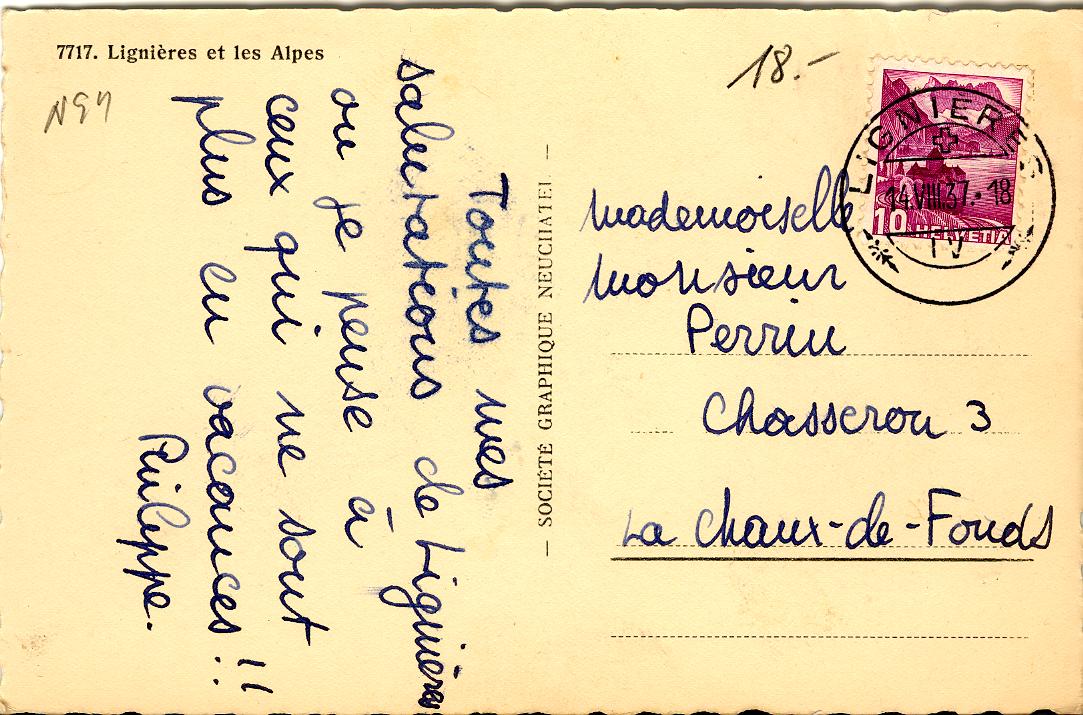 7717. Lignières et les Alpes
N94
18.-
LIGNIÈRES
14.VIII.37.-18
10 HELVETIA
Toutes mes
salutations de Lignières
où je pense à
ceux qui ne sont
plus en vacances!!
Philippe.
SOCIÉTÉ GRAPHIQUE NEUCHATEL
Mademoiselle
Monsieur
Perrin
Chasseron 3
La Chaux-de-Fonds